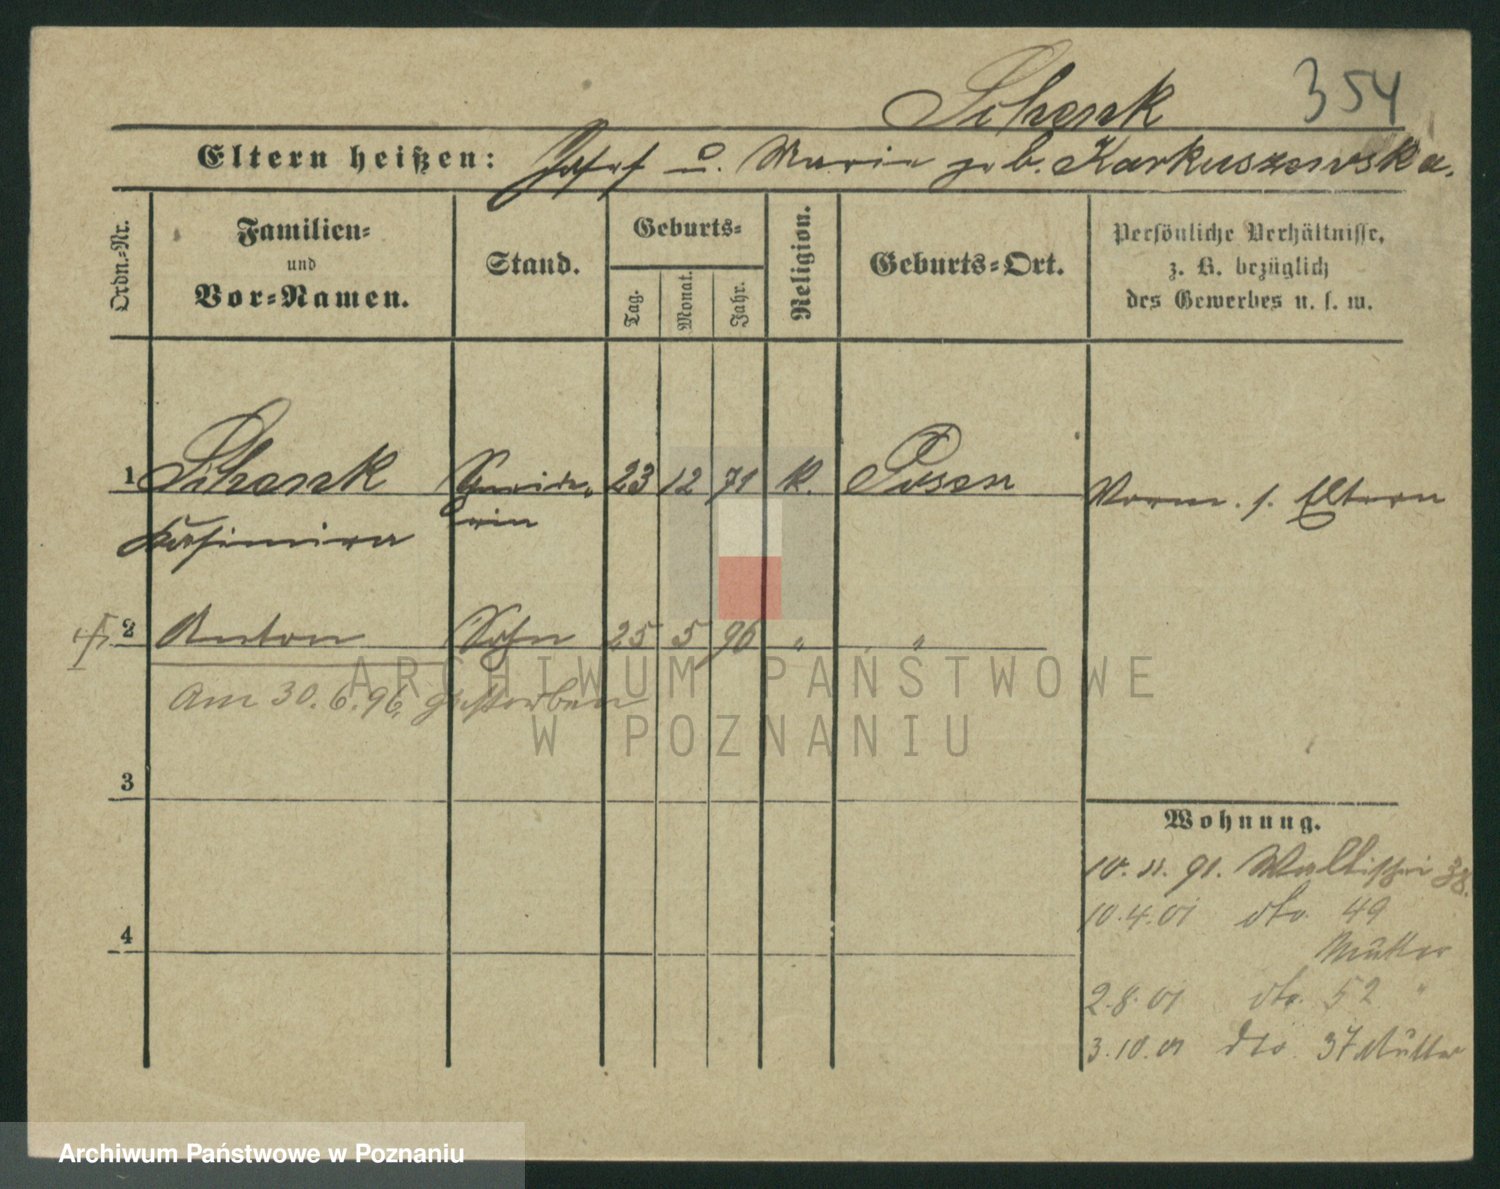 Schenk 354
Eltern heißen: Josef u. Maria geb. Karkuszewska.
Ordn.-Nr.
Familien-
und
Vor-Namen.
Stand.
Geburts-
Tag.
Monat.
Jahr.
Religion.
Geburts-Ort.
Persönliche Verhältnisse,
z. B. bezüglich
des Gewerbes u. s. w.
1 Schenk Schneide- 23 12 71 k. Posen Vorm. s. Eltern
Kasimira rin
2 Anton Sohn 25 5 96 " "
Am 30.6.96. gestorben
ARCHIWUM PAŃSTWOWE
W POZNANIU
3
Wohnung.
10.11.91. Wallischei 38.
10.4.01 dto. 49
4
Mutter
2.8.01 dto. 52 "
3.10.01 dto. 37 Mutter
Archiwum Państwowe w Poznaniu